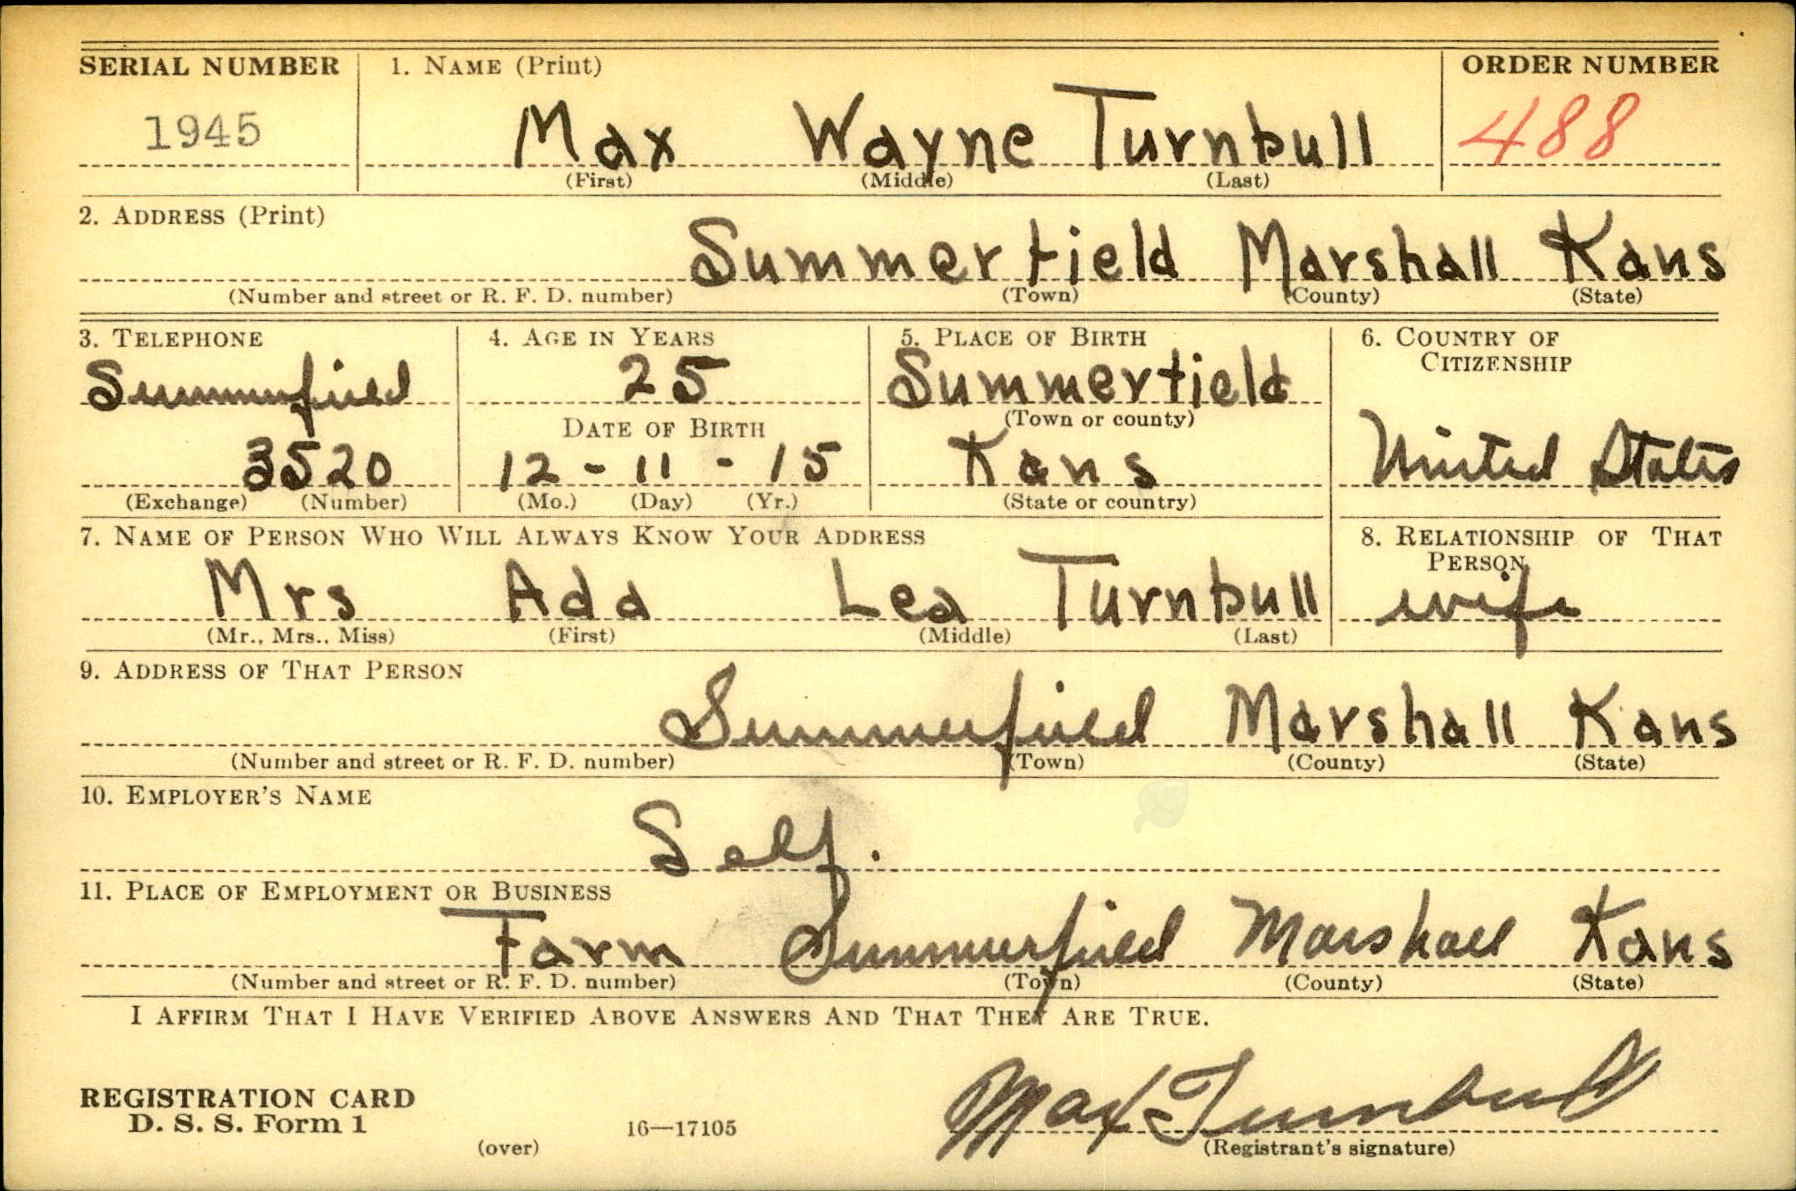 SERIAL NUMBER 1. NAME (Print) ORDER NUMBER
1945 Max Wayne Turnbull 488
(First) (Middle) (Last)
2. ADDRESS (Print)
Summerfield Marshall Kans
(Number and street or R. F. D. number) (Town) (County) (State)
3. TELEPHONE 4. AGE IN YEARS 5. PLACE OF BIRTH 6. COUNTRY OF
CITIZENSHIP
Summerfield 25 Summerfield
DATE OF BIRTH (Town or county)
3520 12 - 11 - 15 Kans United States
(Exchange) (Number) (Mo.) (Day) (Yr.) (State or country)
7. NAME OF PERSON WHO WILL ALWAYS KNOW YOUR ADDRESS 8. RELATIONSHIP OF THAT
PERSON
Mrs Ada Lea Turnbull wife
(Mr., Mrs., Miss) (First) (Middle) (Last)
9. ADDRESS OF THAT PERSON
Summerfield Marshall Kans
(Number and street or R. F. D. number) (Town) (County) (State)
10. EMPLOYER'S NAME
Self.
11. PLACE OF EMPLOYMENT OR BUSINESS
Farm Summerfield Marshall Kans
(Number and street or R. F. D. number) (Town) (County) (State)
I AFFIRM THAT I HAVE VERIFIED ABOVE ANSWERS AND THAT THEY ARE TRUE.
REGISTRATION CARD
D. S. S. Form 1
(over) 16—17105
Max Turnbull
(Registrant's signature)